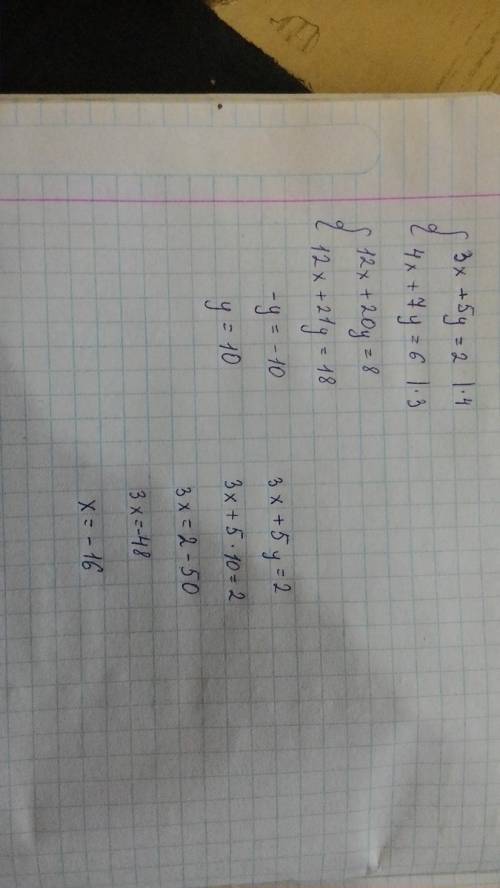 { 3x + 5y = 2 | · 4
{ 4x + 7y = 6 | · 3
{ 12x + 20y = 8
{ 12x + 21y = 18
-y = -10
y = 10
3x + 5y = 2
3x + 5 · 10 = 2
3x = 2 - 50
3x = -48
x = -16